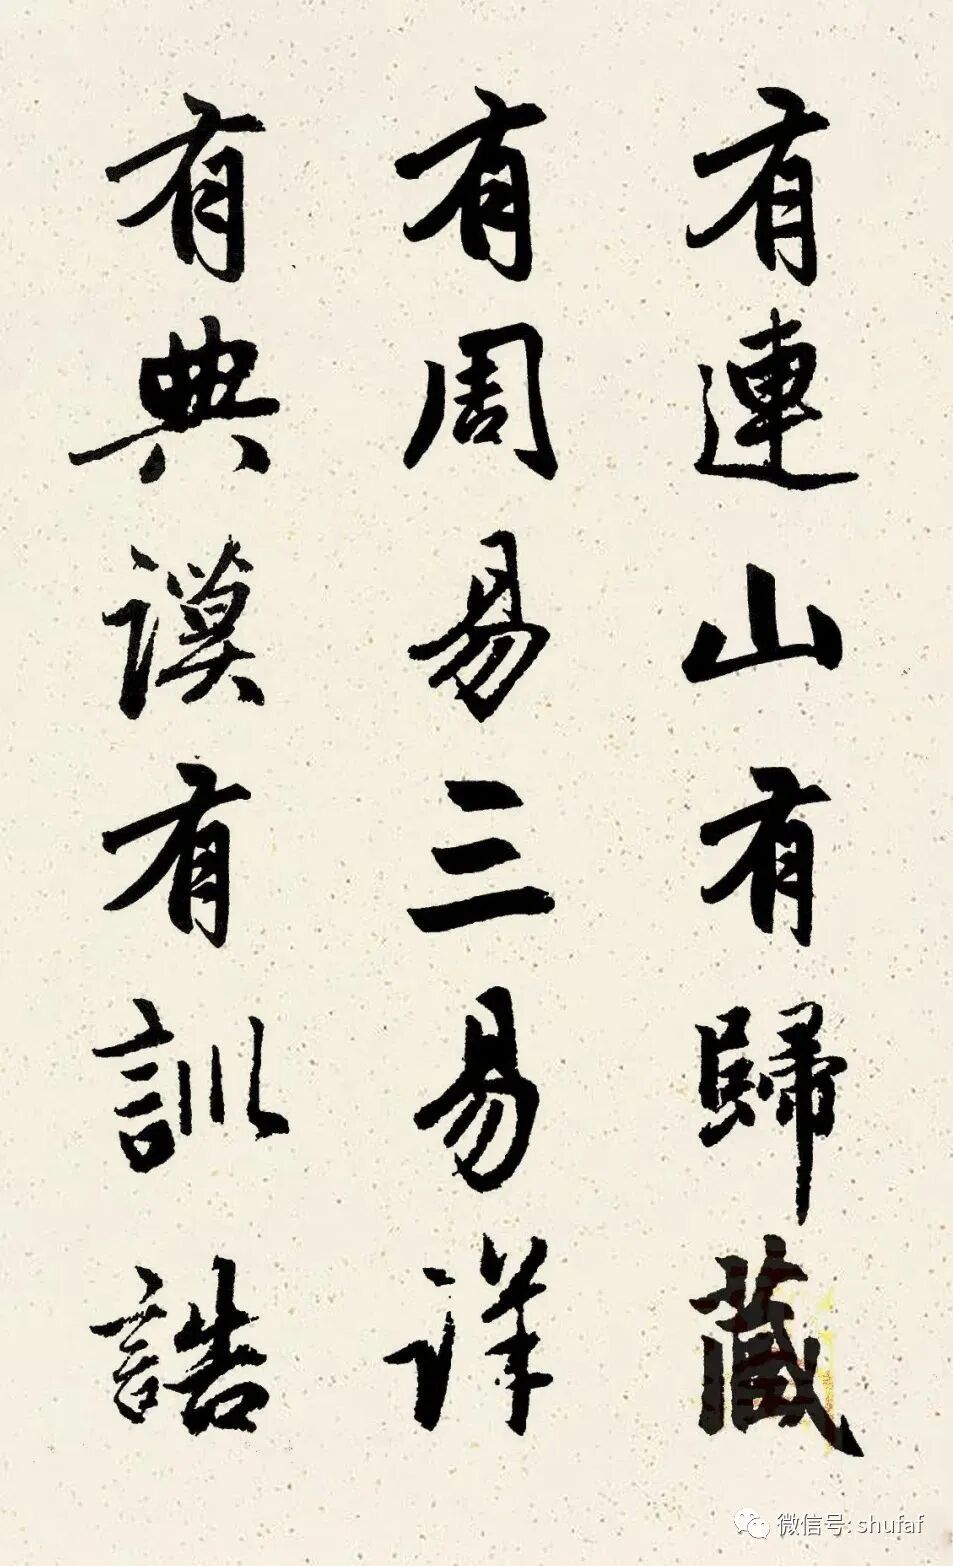 有連山有歸藏
有周易三易详
有典谟有訓誥
微信号: shufaf